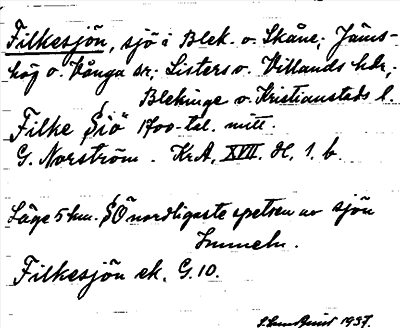 Filkesjön, sjö i Blek. o. Skåne; Jäms-
hög o. Vånga sr; Listers o. Villands hdr,
Blekinge o. Kristianstads l.
Filke Siö 1700-tal. mitt.
G. Norström. Kr.A. XVII. H. 1. b.
Läge 5 km. SÖ nordligaste spetsen av sjön
Immeln.
Filkesjön ek. G. 10.
1937.